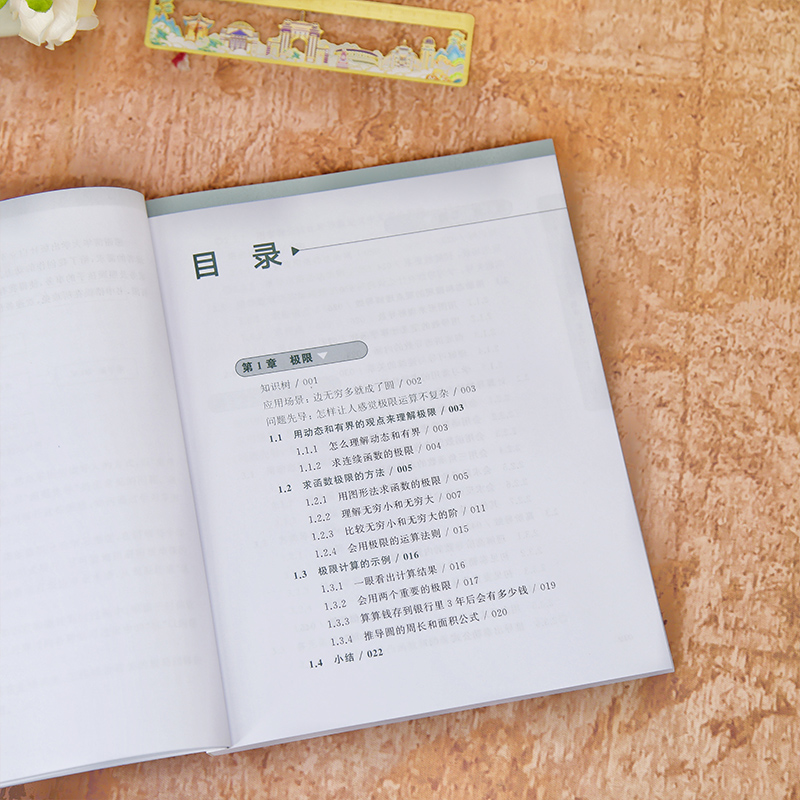 目 录
第1章 极限
知识树 / 001
应用场景：边无穷多就成了圆 / 002
问题先导：怎样让人感觉极限运算不复杂 / 003
1.1 用动态和有界的观点来理解极限 / 003
1.1.1 怎么理解动态和有界 / 003
1.1.2 求连续函数的极限 / 004
1.2 求函数极限的方法 / 005
1.2.1 用图形法求函数的极限 / 005
1.2.2 理解无穷小和无穷大 / 007
1.2.3 比较无穷小和无穷大的阶 / 011
1.2.4 会用极限的运算法则 / 015
1.3 极限计算的示例 / 016
1.3.1 一眼看出计算结果 / 016
1.3.2 会用两个重要的极限 / 017
1.3.3 算算钱存到银行里3年后会有多少钱 / 019
1.3.4 推导圆的周长和面积公式 / 020
1.4 小结 / 022